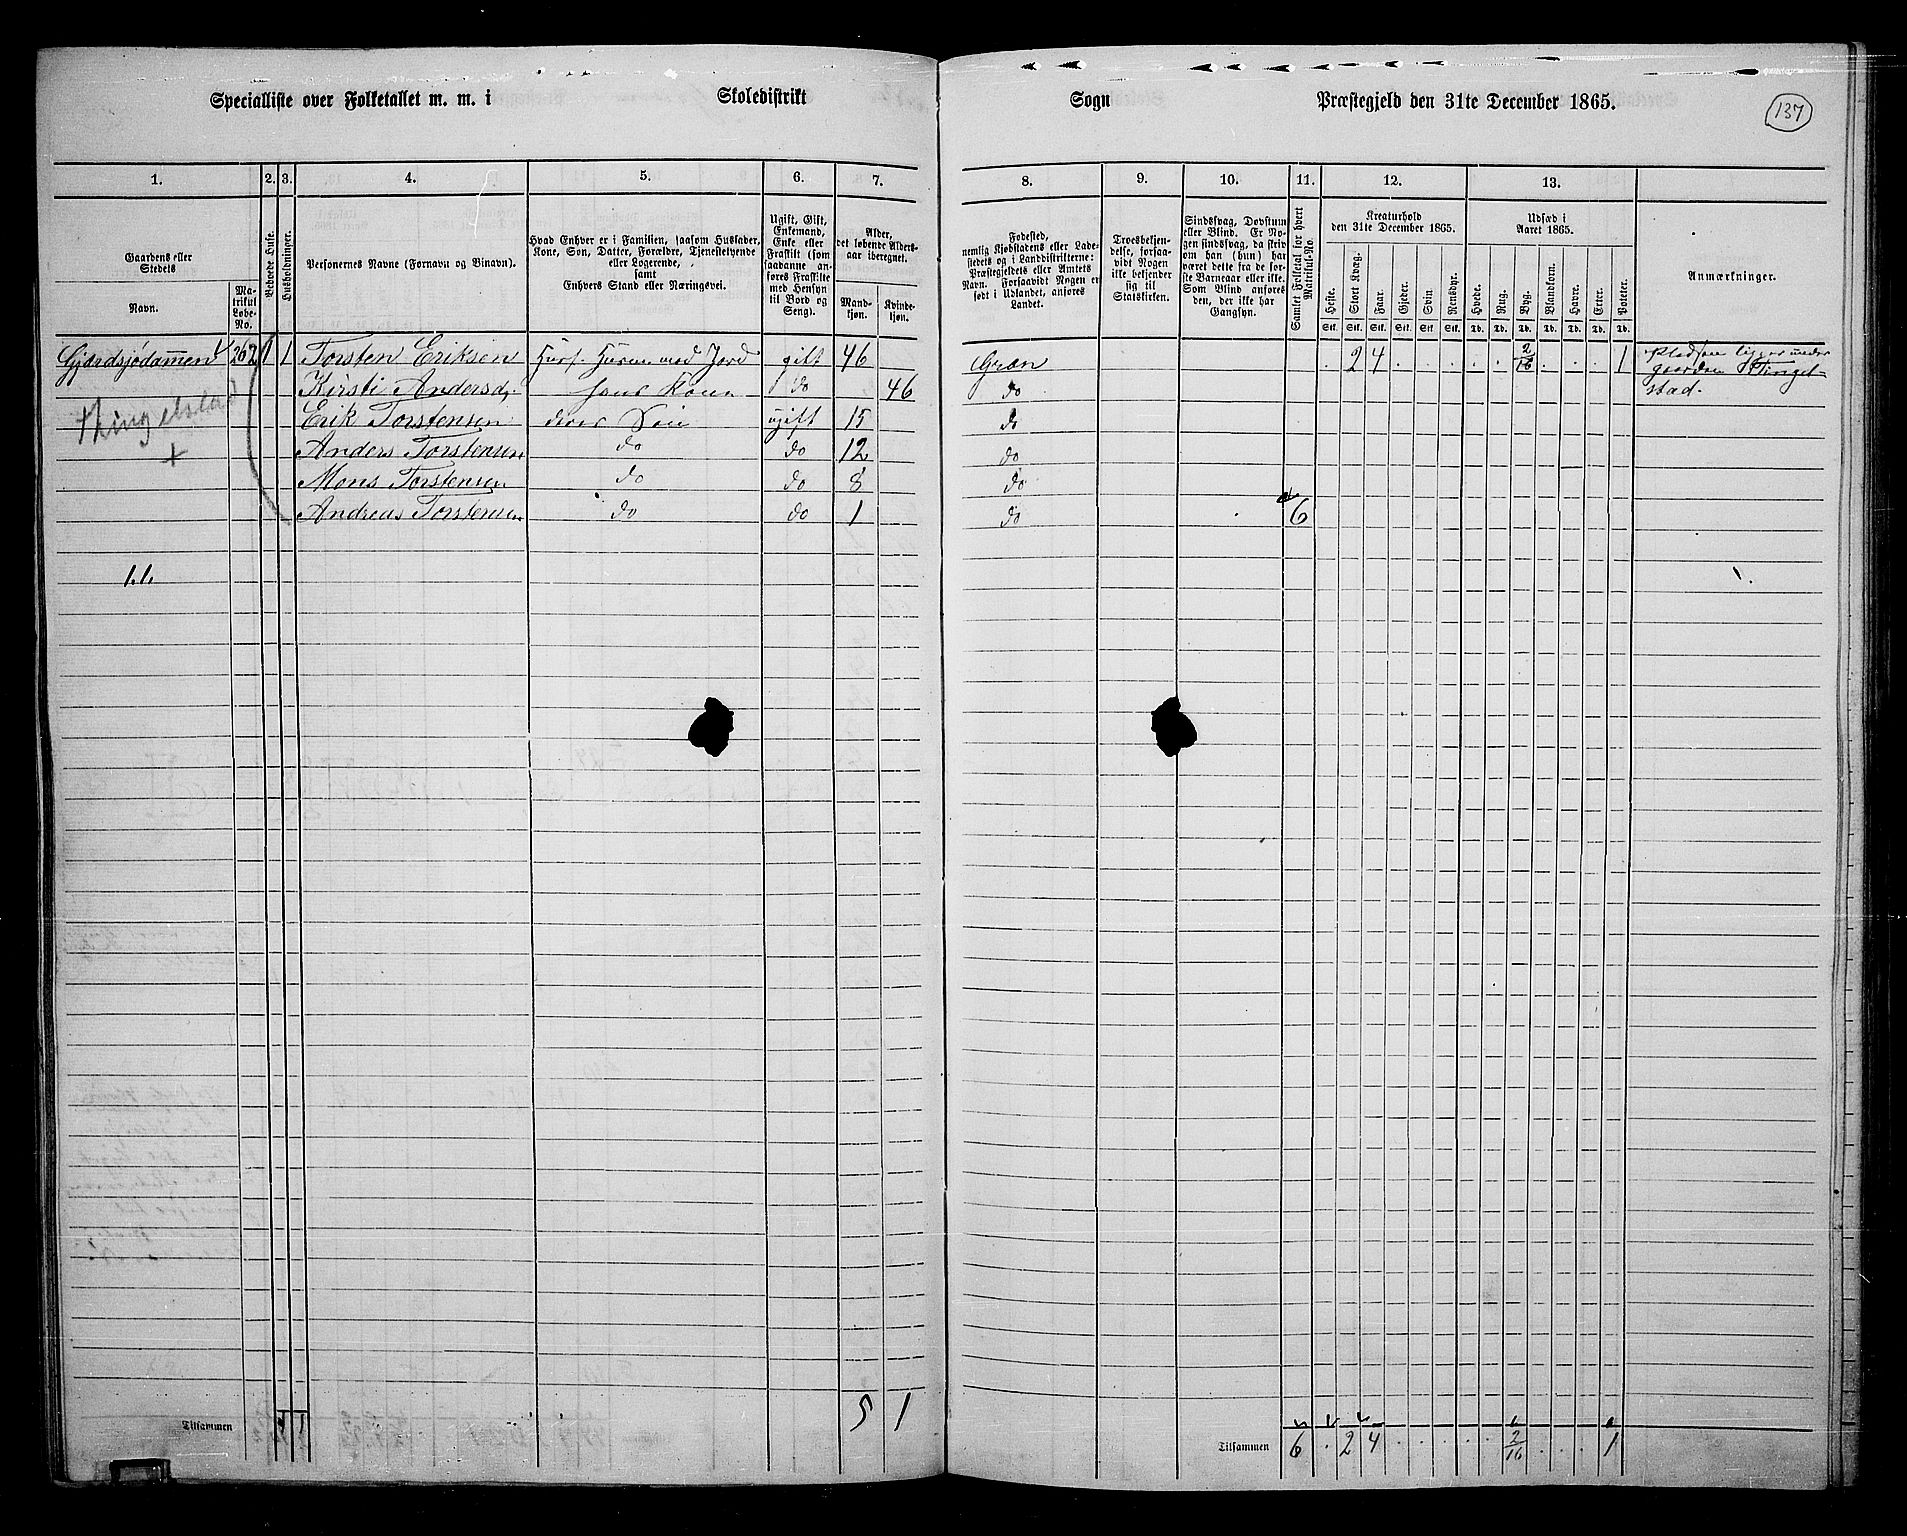 Specialliste over Folketallet m. m. i Skoledistrikt Sogn Præstegjeld den 31te December 1865.
137
1. 2. 3. 4. 5. 6. 7. 8. 9. 10. 11. 12. 13.
Gaardens eller Stedets
Navn.
Matrikul Løbe-No.
Beboede Huse.
Husholdninger.
Personernes Navne (Fornavn og Binavn).
Hvad Enhver er i Familien, saasom Husfader,
Kone, Søn, Datter, Forældre, Tjenestetyende
eller Logerende,
samt
Enhvers Stand eller Næringsvei.
Ugift, Gift,
Enkemand,
Enke eller
Fraskilt (som
saadanne anføres
Fraskilte
med Hensyn
til Bord og
Seng).
Alder,
det løbende Aldersaar
iberegnet.
Mandkjøn.
Kvindekjøn.
Fødested,
nemlig Kjøbstadens eller Ladestedets
og i Landdistrikterne:
Præstegjeldets eller Amtets
Navn. Forsaavidt Nogen er
født i Udlandet, anføres
Landet.
Troesbekjendelse,
forsaavidt
Nogen
ikke bekjender
sig til
Statskirken.
Sindssvag, Døvstum
eller Blind. Er Nogen
sindssvag, da skriv
om han (hun) har
været dette fra de første
Barneaar eller ikke.
Som Blind anføres
den, der ikke har
Gangsyn.
Samlet Folketal for hvert
Matrikul-No.
Kreaturhold
den 31te December 1865.
Heste. Stort Kvæg. Faar. Gjeder. Svin. Rensdyr.
Stk. Stk. Stk. Stk. Stk. Stk.
Udsæd i
Aaret 1865.
Hvede. Rug. Byg. Blandkorn. Havre. Erter. Poteter.
Td. Td. Td. Td. Td. Td. Td.
Anmærkninger.
Gjærdsjödammen 262 1 1 Torsten Eriksen Husf. Husm med Jord gift 46 Gran . 2 4 . . . . . 2/16 . . . 1 Pladsen ligger under
gaarden Tingelstad.
Kirsti Andersd. hans Kone do 46 do
Thingelstad
Erik Torstensen deres Søn ugift 15 do
+
Anders Torstensen do do 12 do
Mons Torstensen do do 8 do
Andreas Torstensen do do 1 do 6
1.1.
Tilsammen 1 1 5 1
Tilsammen 6 . 2 4 . . . . . 2/16 . . . 1